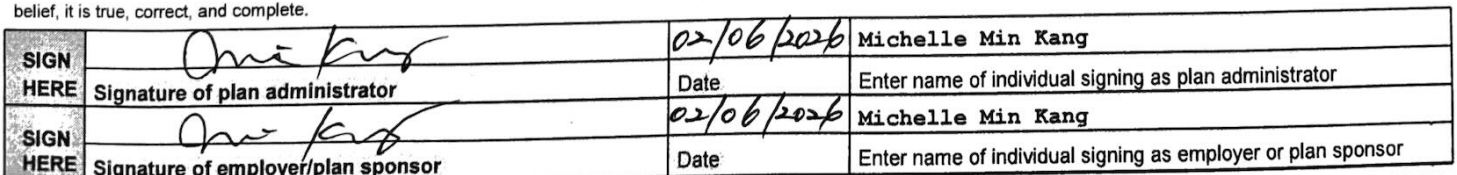 belief, it is true, correct, and complete.
SIGN HERE
Min Kang 02/06/2026 Michelle Min Kang
Signature of plan administrator Date Enter name of individual signing as plan administrator
SIGN HERE
Min Kang 02/06/2026 Michelle Min Kang
Signature of employer/plan sponsor Date Enter name of individual signing as employer or plan sponsor